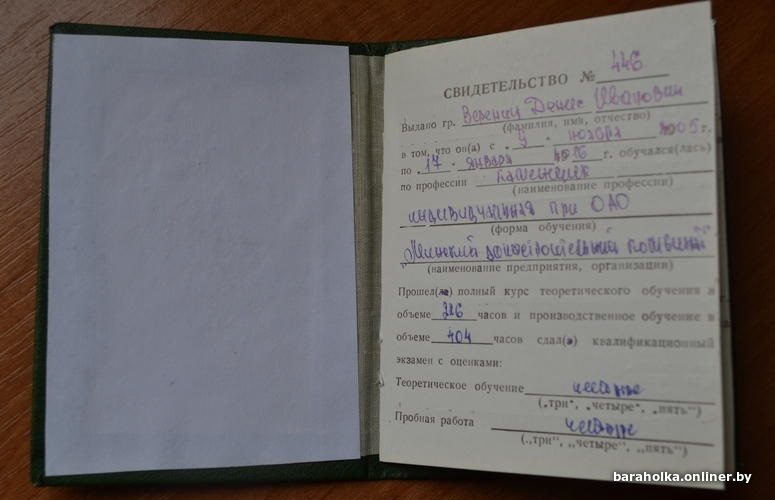 СВИДЕТЕЛЬСТВО № 446
Выдано гр. Денис Иванович
(фамилия, имя, отчество)
в том, что он(а) с „ 9 „ ноября 2005 г.
по „ 17 „ января 2006 г. обучался(лась)
по профессии каменщик
(наименование профессии)
индивидуальная при ОАО
(форма обучения)
Минский домостроительный комбинат
(наименование предприятия, организации)
Прошел(ла) полный курс теоретического обучения в
объеме часов и производственное обучение в
объеме 404 часов сдал(а) квалификационный
экзамен с оценками:
Теоретическое обучение четыре
(„три“, „четыре“, „пять“)
Пробная работа четыре
(„три“, „четыре“, „пять“)
baraholka.onliner.by